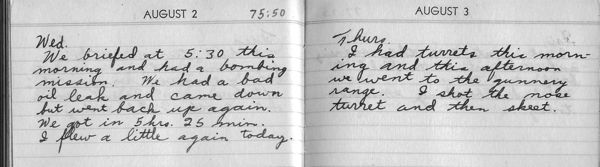 AUGUST 2 75:50
Wed.
We briefed at 5:30 this
morning and had a bombing
mission We had a bad
oil leak and came down
but went back up again.
We got in 5 hrs. 25 min.
I flew a little again today.
AUGUST 3
Thurs.
I had turrets this morn-
ing and this afternoon
we went to the gunnery
range. I shot the nose
turret and then skeet.